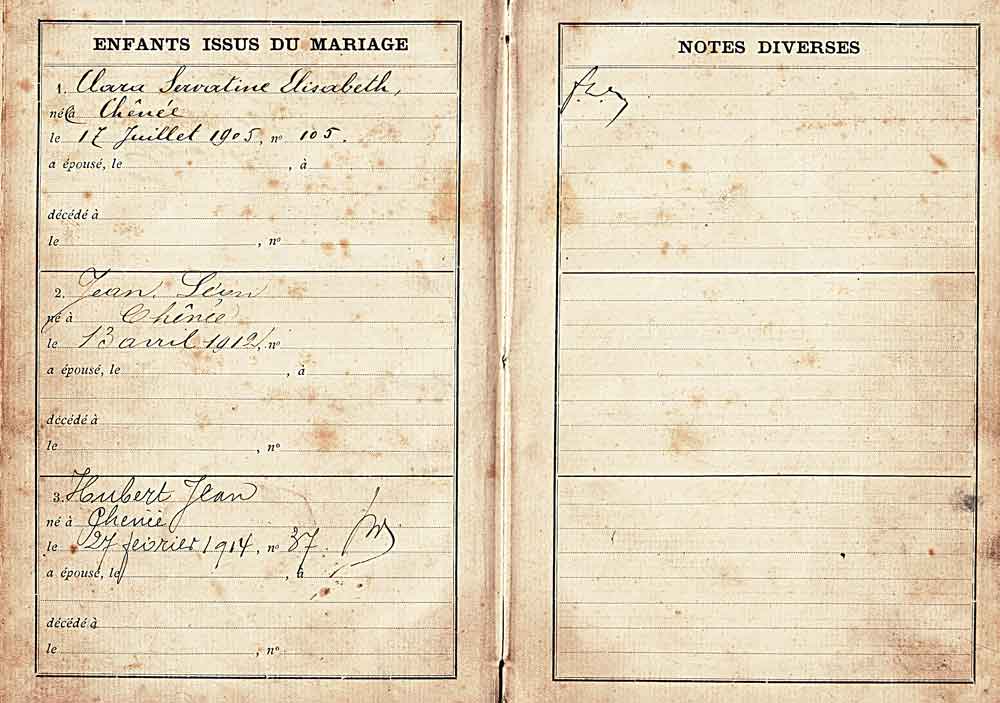 ENFANTS ISSUS DU MARIAGE
1. Clara Servatine Elisabeth,
né à Chênée
le 17 Juillet 1905, nº 105.
a épousé, le , à
décédé à
le , nº
2. Jean Léon
né à Chênée
le 13 avril 1912, nº
a épousé, le , à
décédé à
le , nº
3. Hubert Jean
né à Chenée
le 27 février 1914, nº 37.
a épousé, le , à
décédé à
le , nº
NOTES DIVERSES